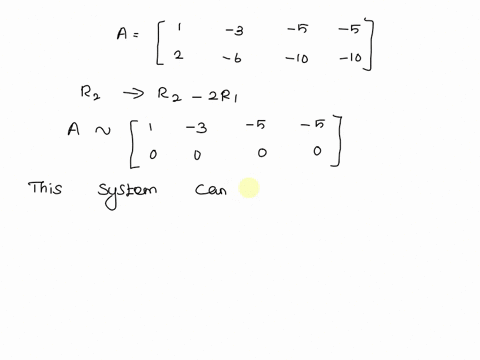 A = [ 1 -3 -5 -5
2 -6 -10 -10 ]
R₂ → R₂ - 2R₁
A ~ [ 1 -3 -5 -5
0 0 0 0 ]
This system can